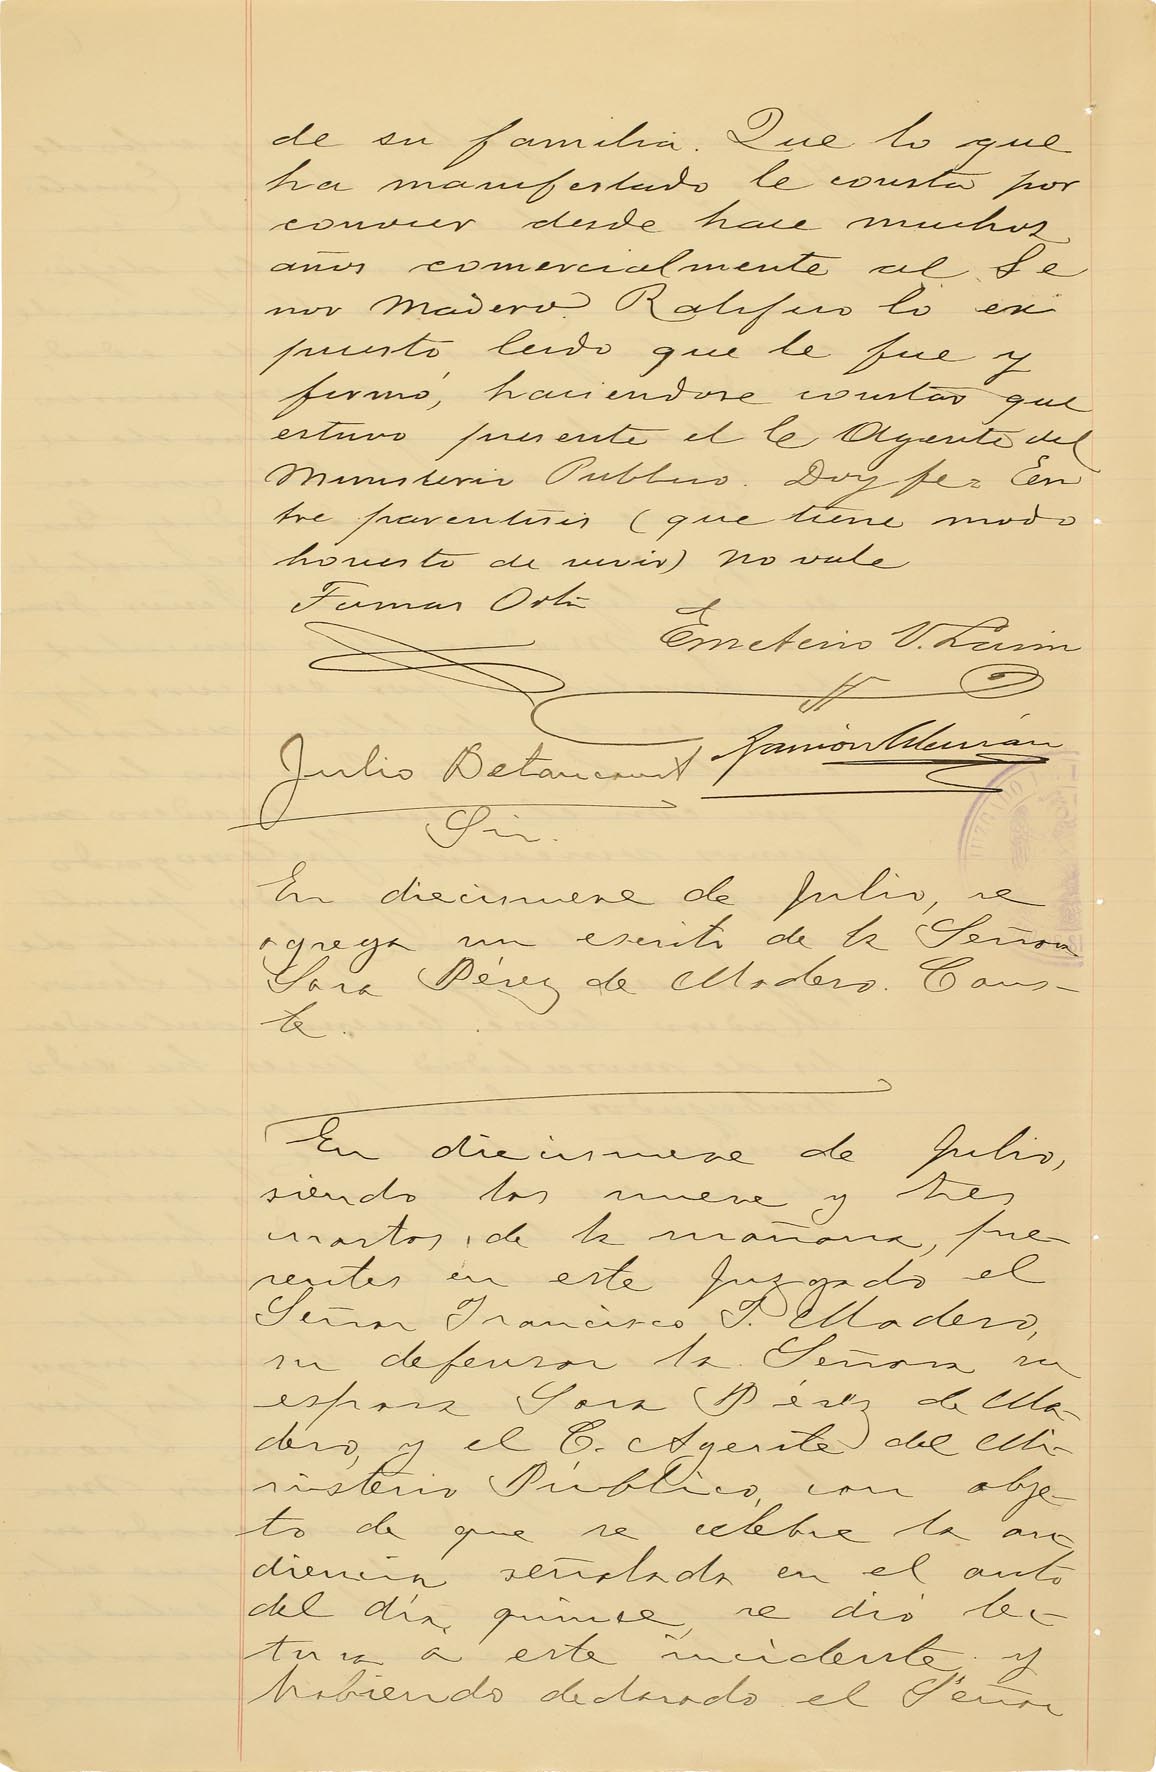 de su familia. Que lo que
ha manifestado le consta por
conocer desde hace muchos
años comercialmente al Se
nor Madero. Ratifico lo ex
puesto leido que le fue y
firmó, haciendose constar que
estuvo presente el C Agente del
Ministerio Publico. Doy fe = En
tre parentisis (que tiene modo
honesto de vivir) no vale
Tomas Ortiz
Emeterio V. Lavin
Julio Betancourt
Ramón Alemán
Srio.
En diecinueve de Julio, se
agrega un escrito de la Señora
Sara Pérez de Madero. Cons-
te.
En diecinueve de Julio,
siendo las nueve y tres
cuartos de la mañana, pre-
sentes en este Juzgado el
Señor Francisco I. Madero,
su defensor la Señora su
esposa Sara Pérez de Ma-
dero, y el C. Agente del Mi-
nisterio Público, con obje-
to de que se celebre la au-
diencia señalada en el auto
del día quince, se dió lec-
tura a este incidente y
habiendo declarado el Señor